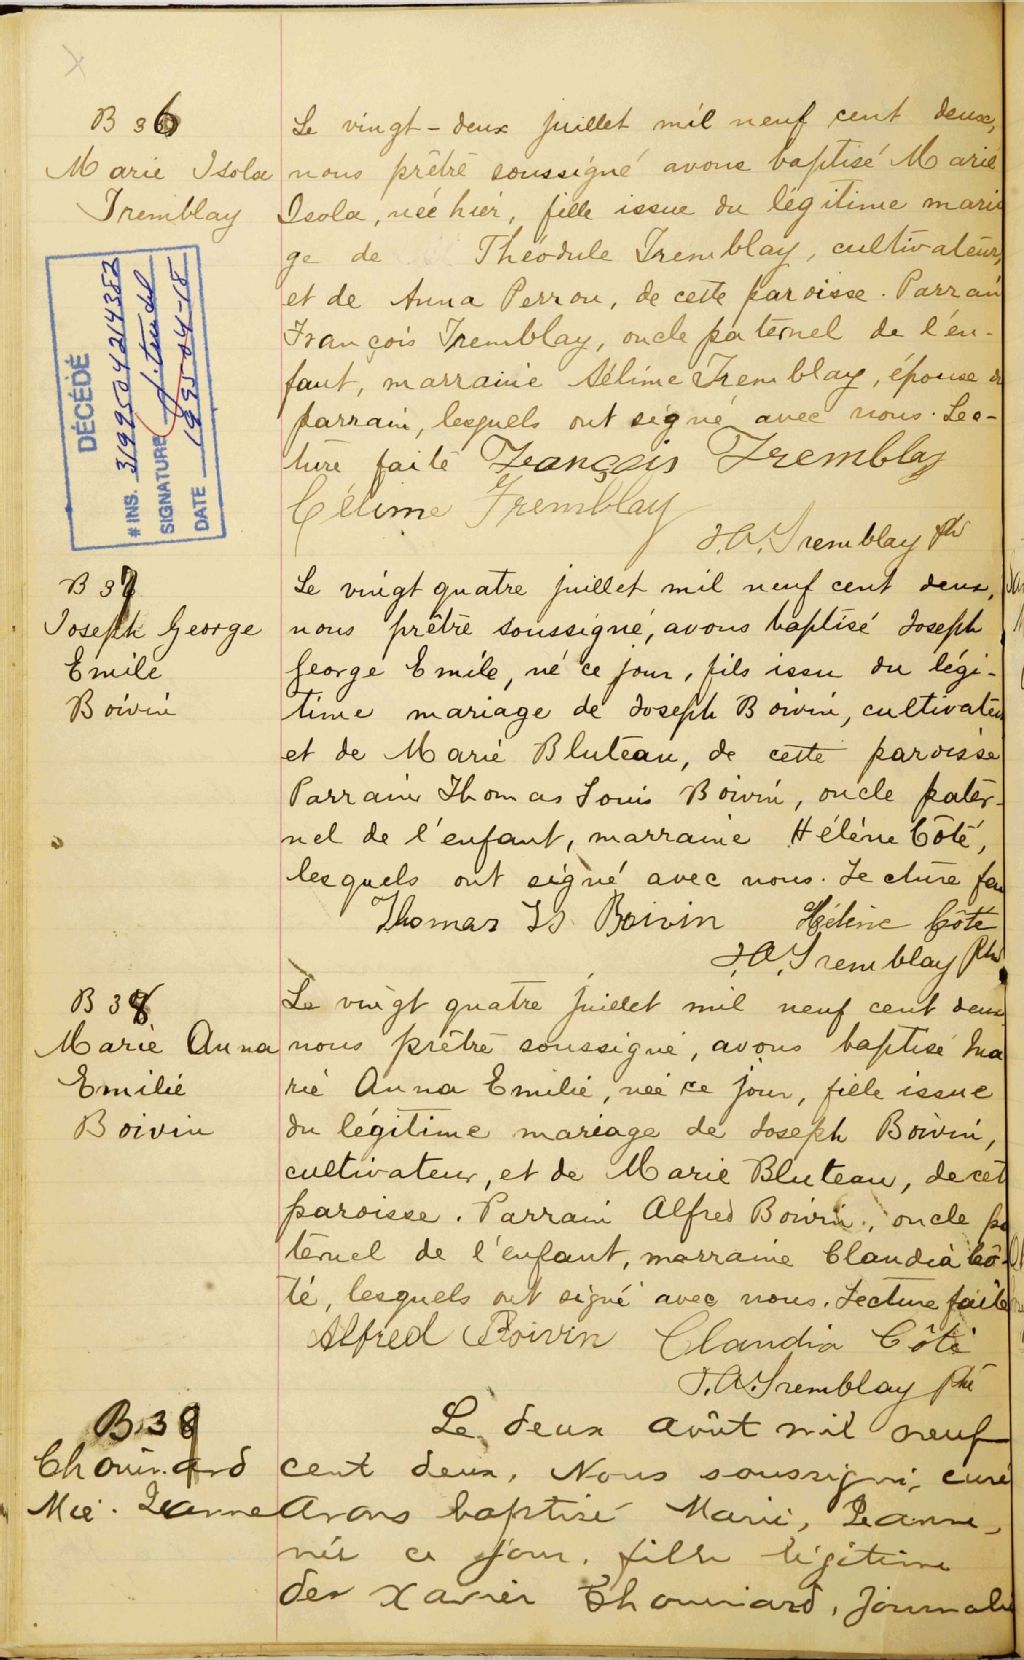 B 36
Marie Isola
Tremblay
Le vingt-deux juillet mil neuf cent deux,
nous prêtre soussigné avons baptisé Marie
Isola, née hier, fille issue du légitime maria
ge de Théodule Tremblay, cultivateur,
et de Anna Perron, de cette paroisse. Parrain
François Tremblay, oncle paternel de l'en-
fant, marraine Sélime Tremblay, épouse du
parrain, lesquels ont signé avec nous. Lec-
ture faite François Tremblay
Célime Tremblay
J.A. Tremblay Ptr
DÉCÉDÉ
# INS.
SIGNATURE
DATE 1995-04-18
B 37
Joseph George
Emile
Boivin
Le vingt quatre juillet mil neuf cent deux,
nous prêtre soussigné, avons baptisé Joseph
George Emile, né ce jour, fils issu du légi-
time mariage de Joseph Boivin, cultivateur
et de Marie Bluteau, de cette paroisse
Parrain Thomas Louis Boivin, oncle pater-
nel de l'enfant, marraine Hélène Côté,
lesquels ont signé avec nous. Lecture fai
Thomas Ls Boivin Hélène Côté
J.A. Tremblay Ptr
B 38
Marie Anna
Emilie
Boivin
Le vingt quatre juillet mil neuf cent deux
nous prêtre soussigné, avons baptisé Ma
rie Anna Emilie, née ce jour, fille issue
du légitime mariage de Joseph Boivin,
cultivateur, et de Marie Bluteau, de cet
paroisse. Parrain Alfred Boivin, oncle pa
ternel de l'enfant, marraine Claudia Cô-
té, lesquels ont signé avec nous. Lecture faite
Alfred Boivin Claudia Côté
J.A. Tremblay Ptr
B 39
Chouinard
Mie. Jeanne
Le deux août mil neuf
cent deux, Nous soussigné, curé
Avons baptisé Marie, Jeanne,
née ce jour, fille légitime
der Xavier Chouinard, journali